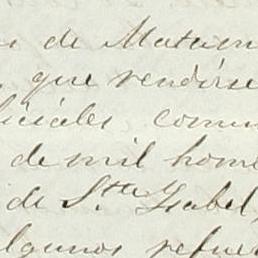 de Matan
que rendirse
iciales comun
de mil hom
de Sta. Ysabel,
algunos refuer